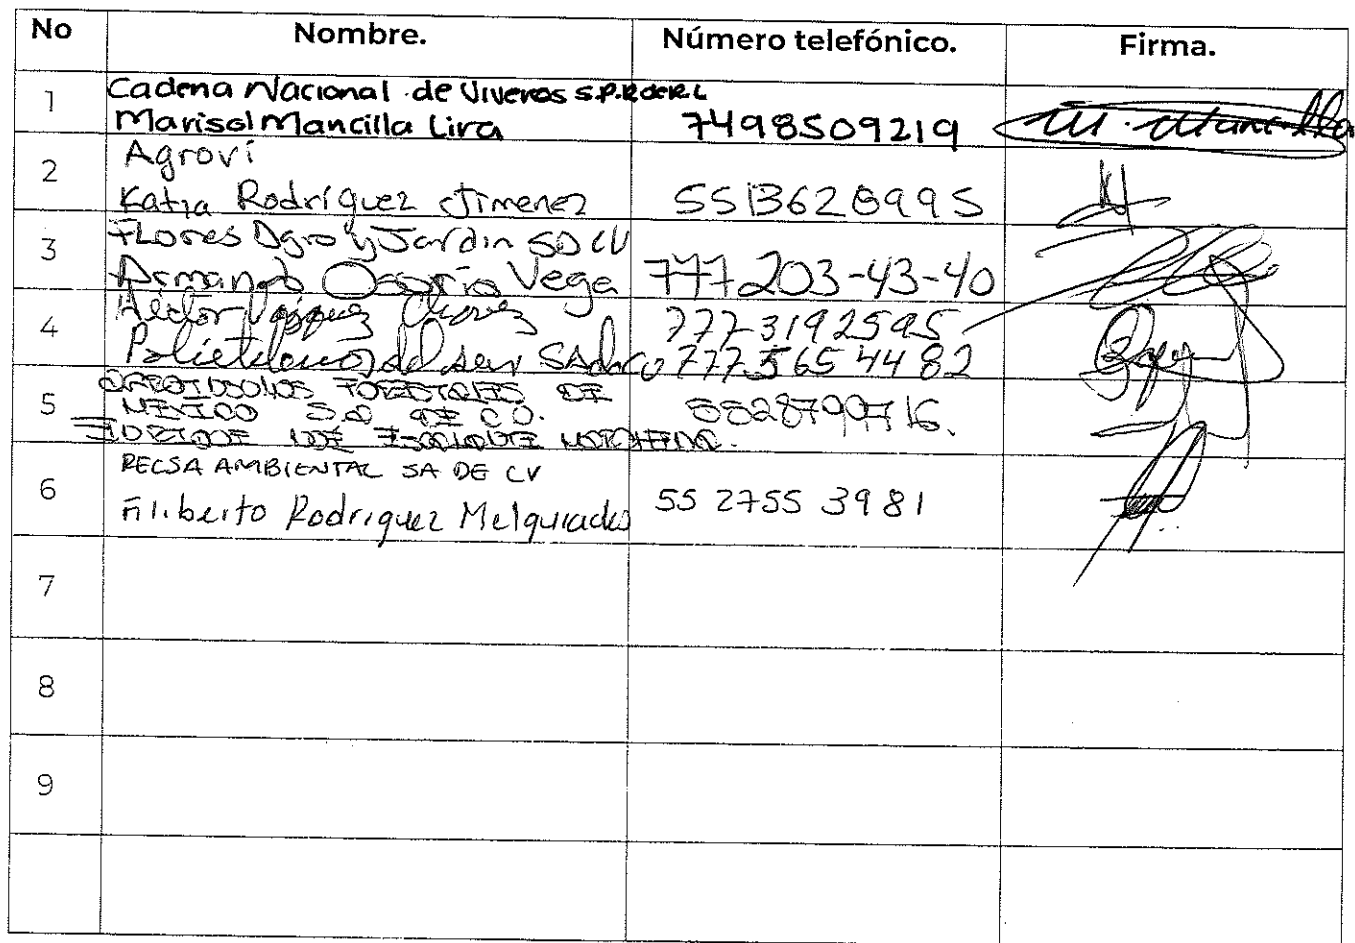 No Nombre. Número telefónico. Firma.
1 Cadena Nacional de Viveros S.P.R de R.L
Marisol Mancilla Lira 7498509219 M. Mancilla
2 Agrovi
Katia Rodríguez Jimenez 5513620995
3 Flores Agro y Jardin SD CV
Armando Osorio Vega 777 203-43-40
4 Hector Vazquez Chavez 777 3192595
Polietilenos del sur SA de CV 777 565 44 82
5 FORESTALES DE
MEXICO S.A DE C.V. 5528799716.
6 RECSA AMBIENTAL SA DE CV
Filiberto Rodriguez Melquiades 55 2755 3981
7
8
9